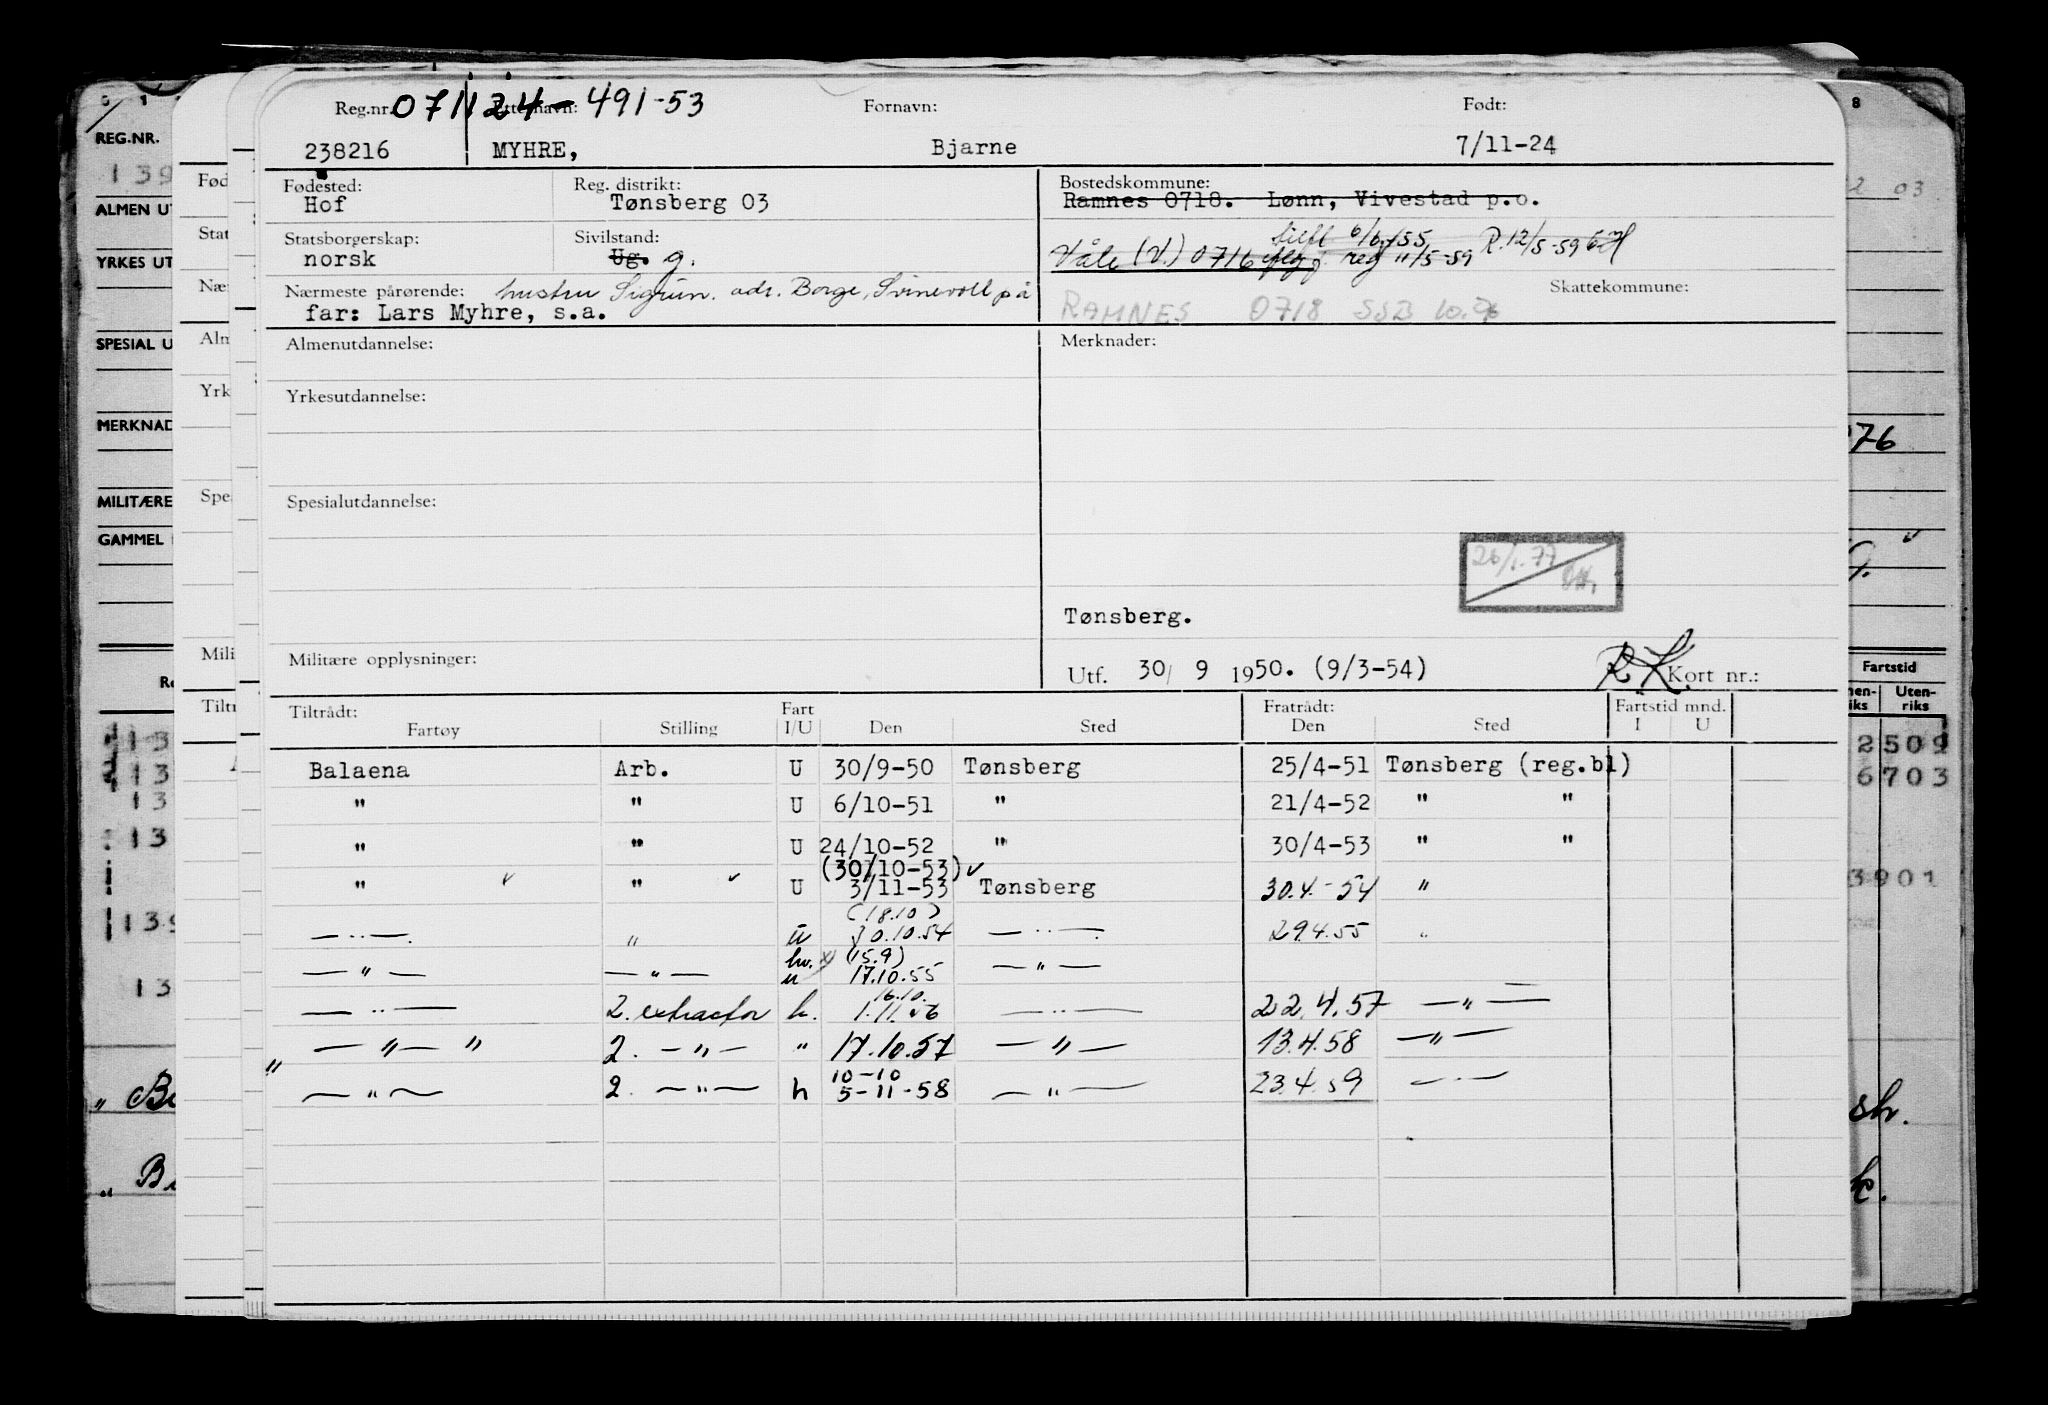 Reg.nr. 071124-491-53 Etternavn: Fornavn: Født:
238216 MYHRE, Bjarne 7/11-24
Fødested: Reg. distrikt: Bostedskommune:
Hof Tønsberg 03 Ramnes 0718. Lønn, Vivestad p.o.
Statsborgerskap: Sivilstand: 6/6-55 R.12/5-59
norsk Ug. g. Våle (V.) 0716 reg 11/5-59
Nærmeste pårørende: hustru Sigrun. adr. Borge, Svinevoll på Skattekommune:
far: Lars Myhre, s.a. RAMNES 0718 SSB 10.
Almenutdannelse: Merknader:
Yrkesutdannelse:
Spesialutdannelse:
26/1.77
Tønsberg.
Militære opplysninger: Utf. 30/ 9 1950. (9/3-54) RK Kort nr.:
Tiltrådt: Fart Fratrådt: Fartstid mnd.
Fartøy Stilling I/U Den Sted Den Sted I U
Balaena Arb. U 30/9-50 Tønsberg 25/4-51 Tønsberg (reg.bl)
" " U 6/10-51 " 21/4-52 " "
" " U 24/10-52 " 30/4-53 " "
(30/10-53) ✓
" ✓ " ✓ U 3/11-53 Tønsberg 30.4.-54 "
(18.10)
— " — " u 30.10.54 — " — 29.4.55 "
hv. (15.9)
— " — — " — u 17.10.55 — " —
16.10.
— " — 2. extractor h. 1.11.56 — " — 22.4.57 — " —
" — " — " 2. — " — " 17.10.57 — " — 13.4.58 — " —
10-10
— " — 2. — " — h 5-11-58 — " — 23.4.59 — " —
REG.NR.
139
ALMEN UT
YRKES UT
SPESIAL U
MERKNAD
MILITÆRE
GAMMEL
Fød
Stat
Nær
Alm
Yrk
Spe
Mili
Tiltr
8
03
76
Fartstid
Uten-
riks
2509
6703
3901
sh.
k.